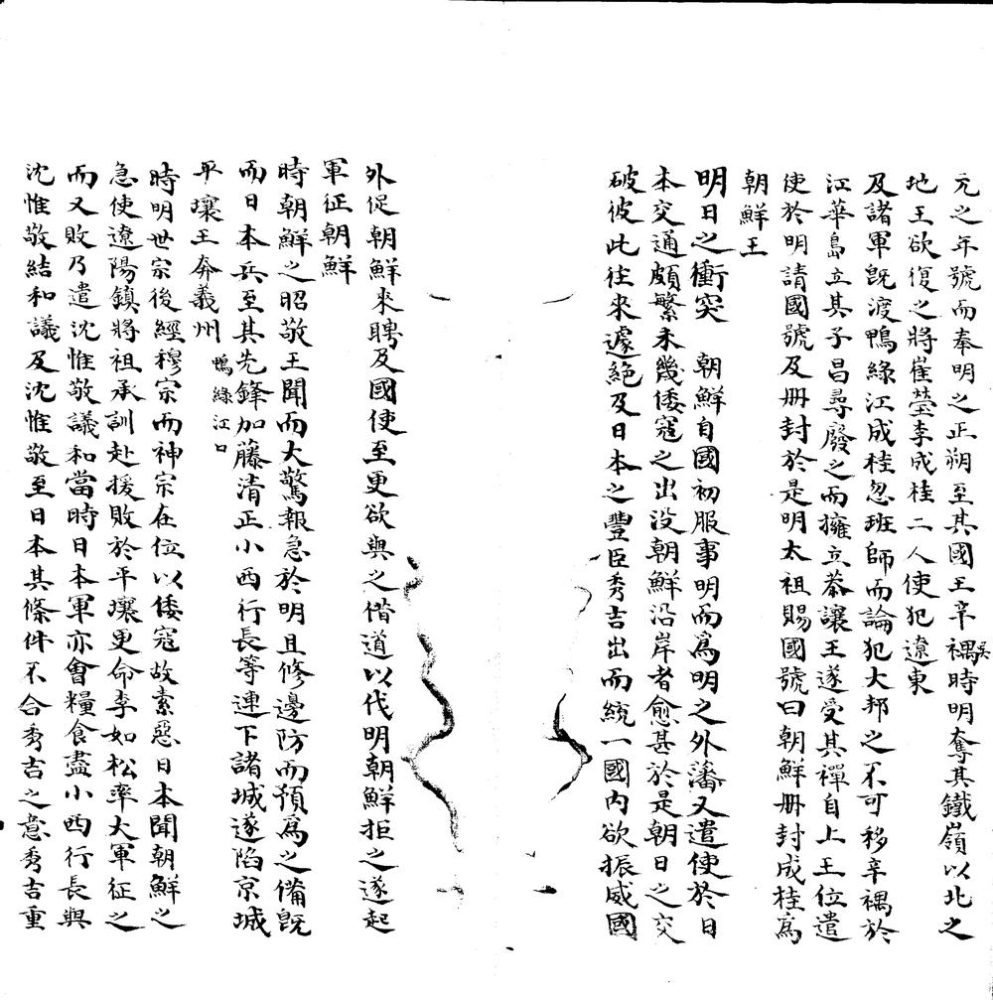 元之年號而奉明之正朔至其國王辛禑時明奪其鐵嶺以北之
地王欲復之將崔瑩李成桂二人使犯遼東
及諸軍旣渡鴨綠江成桂忽班師而論犯大邦之不可移辛禑於
江華島立其子昌尋廢之而擁立恭讓王遂受其禪自上王位遣
使於明請國號及册封於是明太祖賜國號曰朝鮮册封成桂爲
朝鮮王
明日之衝突 朝鮮自國初服事明而爲明之外藩又遣使於日
本交通頗繁未幾倭寇之出没朝鮮沿岸者愈甚於是朝日之交
破彼此往來遽絕及日本之豐臣秀吉出而統一國內欲振威國
外促朝鮮來聘及國使至更欲與之借道以代明朝鮮拒之遂起
軍征朝鮮
時朝鮮之昭敬王聞而大驚報急於明且修邊防而預爲之備旣
而日本兵至其先鋒加藤清正小西行長等連下諸城遂陷京城
平壤王奔義州 鴨綠江口
時明世宗後經穆宗而神宗在位以倭寇故素惡日本聞朝鮮之
急使遼陽鎮將祖承訓赴援敗於平壤更命李如松率大軍征之
而又敗乃遣沈惟敬議和當時日本軍亦會糧食盡小西行長與
沈惟敬結和議及沈惟敬至日本其條件不合秀吉之意秀吉重